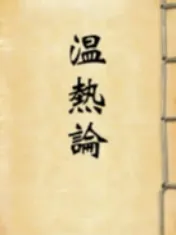 温熱論